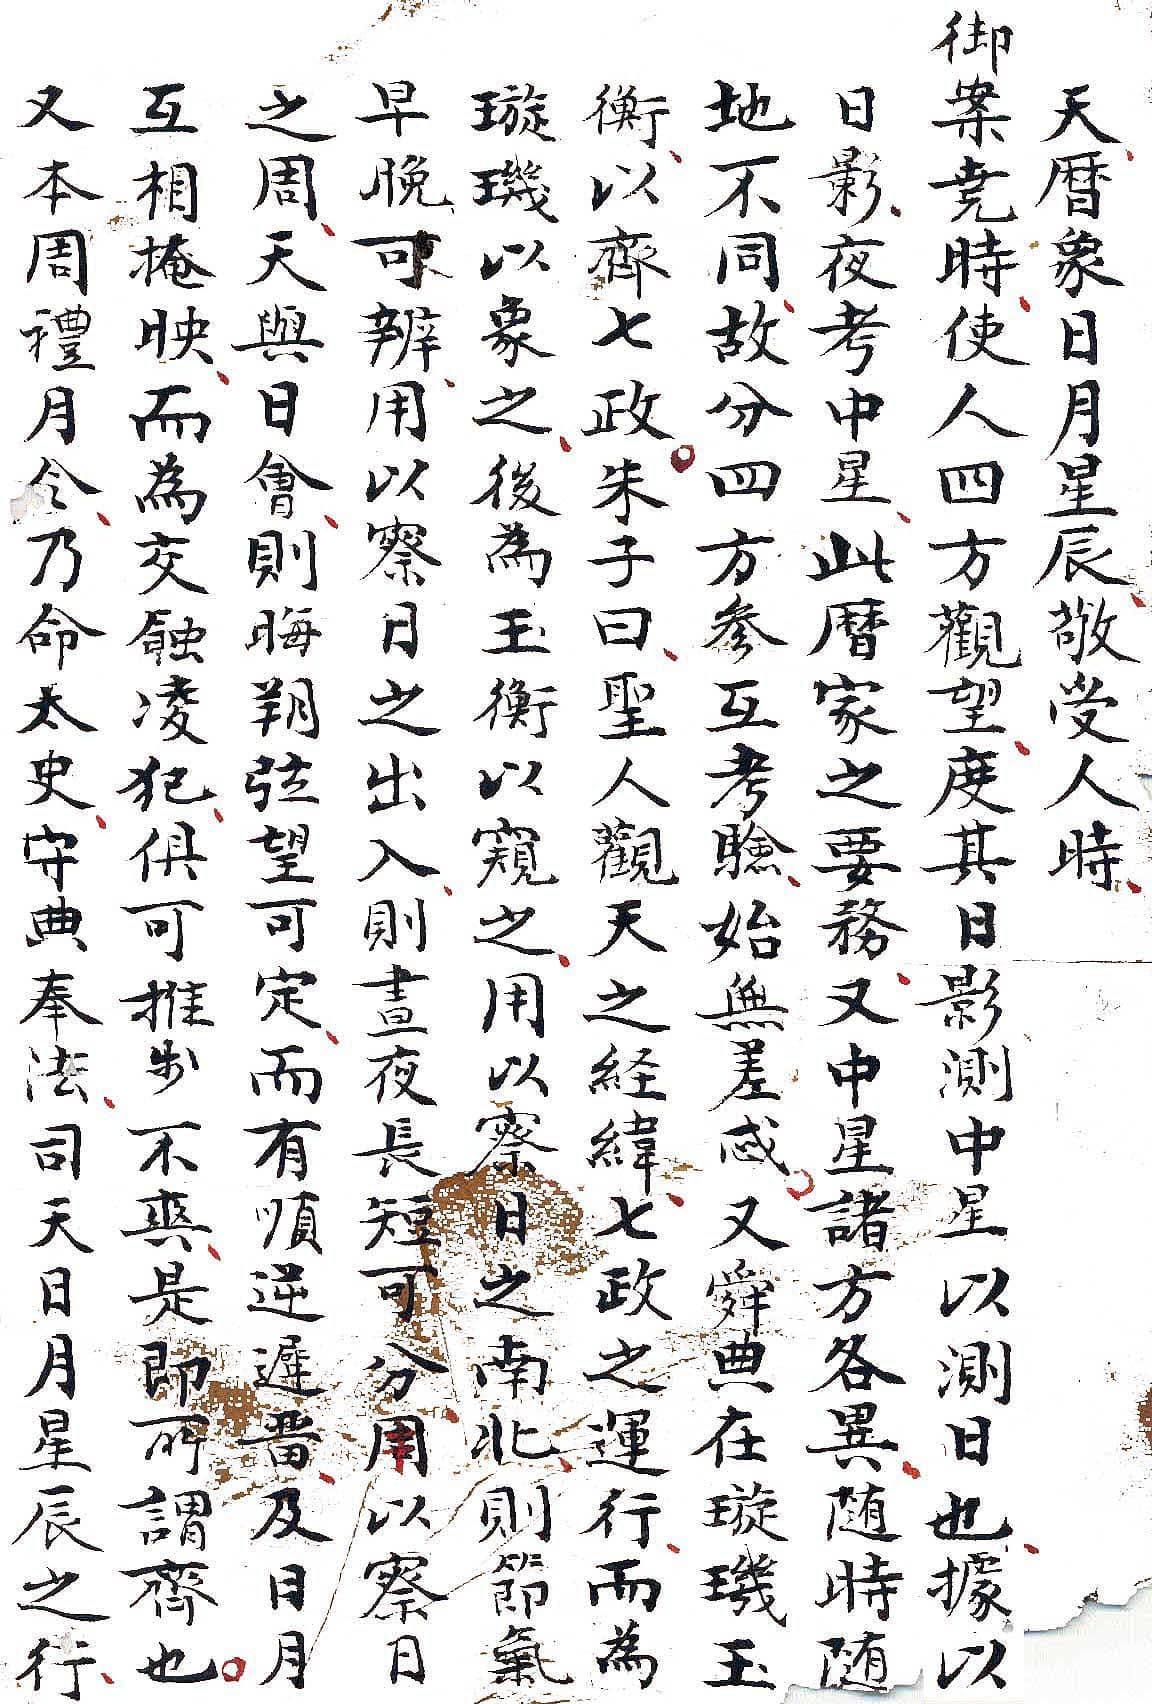 天暦象日月星辰敬受人時
御案尭時使人四方觀望度其日影測中星以測日也據以
日影夜考中星此暦家之要務又中星諸方各異随時随
地不同故分四方參互考驗始無差惑又舜典在璇璣玉
衡以齊七政朱子曰聖人觀天之経緯七政之運行而為
璇璣以象之後為玉衡以窺之用以察日之南北則節氣
早晩可辨用以察日之出入則晝夜長短可分用以察日
之周天與日會則晦朔弦望可定而有順逆遲畱及日月
互相掩映而為交蝕凌犯俱可推步不爽是即所謂齊也
又本周禮月令乃命太史守典奉法司天日月星辰之行